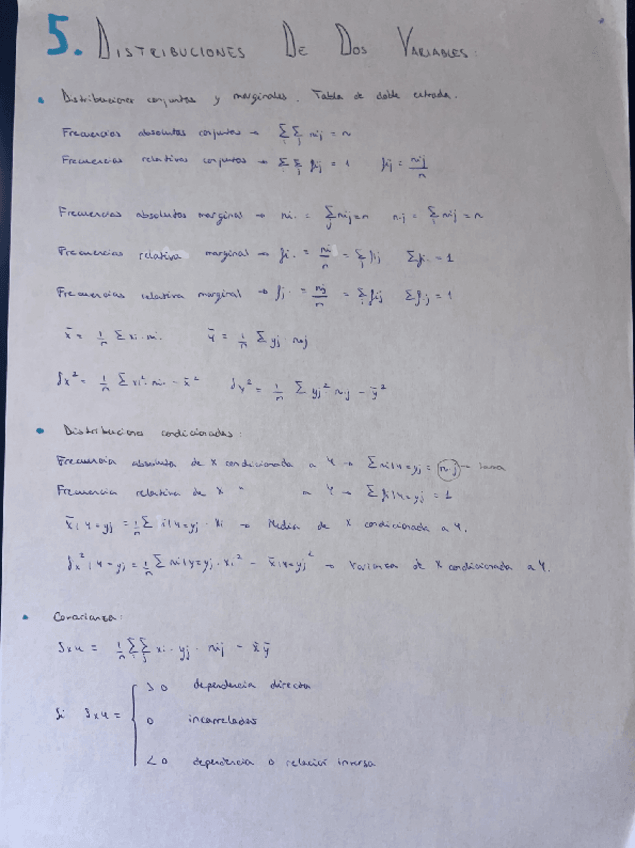 5. DISTRIBUCIONES DE DOS VARIABLES:
• Distribuciones conjuntas y marginales. Tabla de doble entrada.
Frecuencias absolutas conjuntas → Σi Σj nij = n
Frecuencias relativas conjuntas → Σi Σj fij = 1 fij = nij/n
Frecuencias absolutas marginal → ni. = Σj nij = n n.j = Σi nij = n
Frecuencias relativa marginal → fi. = ni/n = Σj fij Σfi. = 1
Frecuencias relativa marginal → fj. = nj/n = Σi fij Σf.j = 1
x̄ = 1/n Σ xi · ni. ȳ = 1/n Σ yj · n.j
Sx² = 1/n Σ xi² · ni. - x̄² Sy² = 1/n Σ yj² · n.j - ȳ²
• Distribuciones condicionadas:
Frecuencia absoluta de X condicionada a Y → Σ ni|Y=yj = n.j →
Frecuencia relativa de X " a Y → Σ fi|Y=yj = 1
x̄|Y=yj = 1/n Σ i|Y=yj · xi → Media de X condicionada a Y.
Sx²|Y=yj = 1/n Σ ni|Y=yj · xi² - x̄|Y=yj² → Varianza de X condicionada a Y.
• Covarianza:
Sxy = 1/n Σi Σj xi · yj · nij - x̄ȳ
>0 dependencia directa
Si Sxy = 0 incorreladas
<0 dependencia o relación inversa